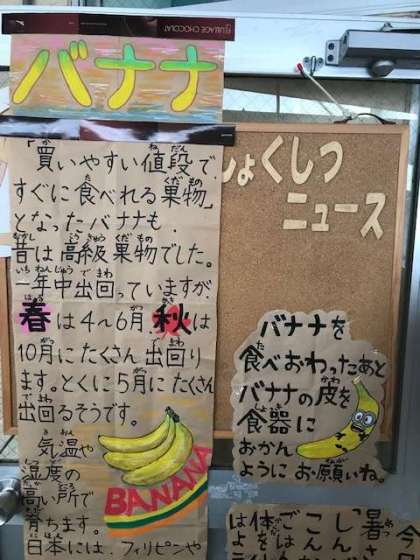 VILLAGE CHOCOLAT
バナナ
「買いやすい値段で、
すぐに食べれる果物」
となったバナナも、
昔は高級果物でした。
一年中出回っていますが、
春は4〜6月、秋は
10月にたくさん出回り
ます。とくに5月にたくさん
出回るそうです。
気温や
湿度の
高い所で
育ちます。
日本には、フィリピンや
BANANA
しょくしつ
ニュース
バナナを
食べおわったあと
バナナの皮を
食器に
おかん
ようにお願いね。